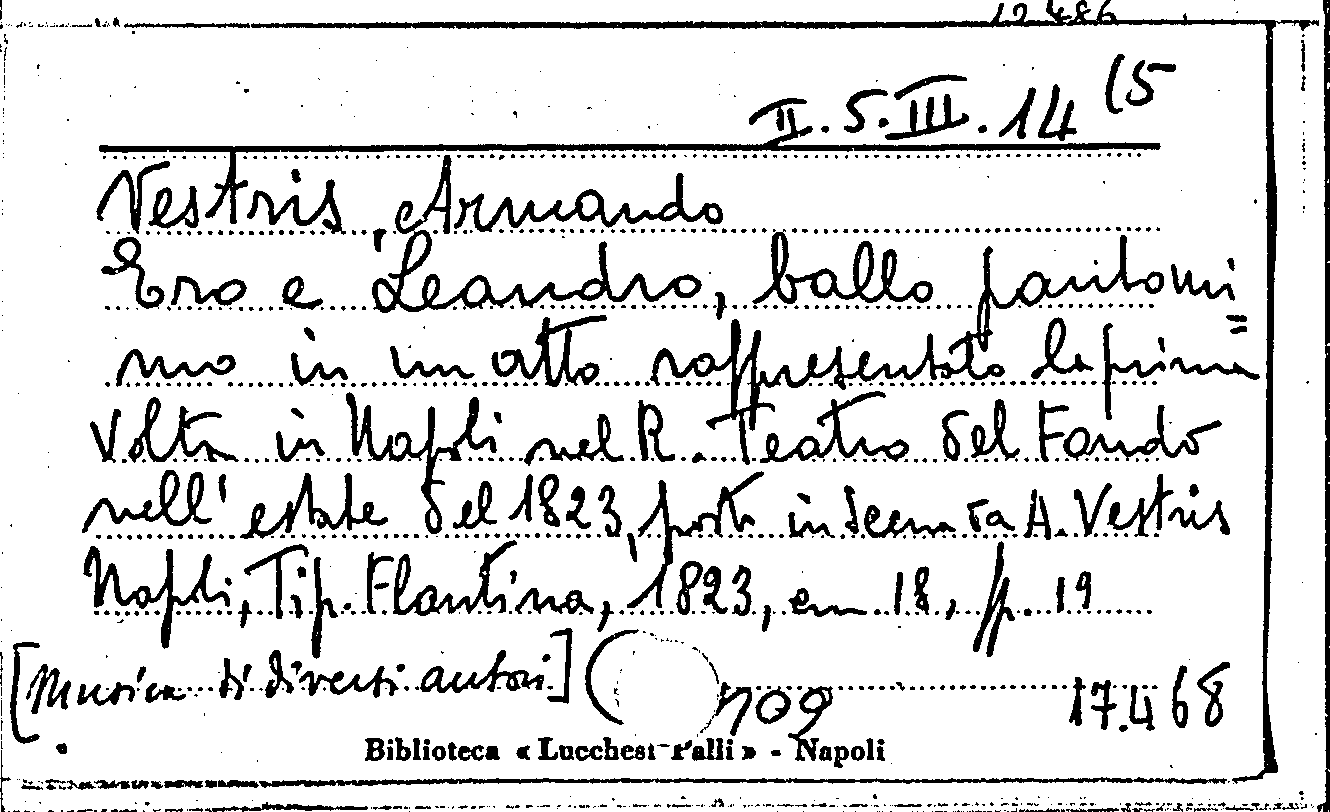 12.486
II.5.III.14 (5
Vestris, Armando
Ero e Leandro, ballo pantomi=
mo in un atto rappresentato la prima
volta in Napoli nel R. Teatro del Fondo
nell'estate del 1823, posto in scena da A. Vestris
Napoli, Tip. Flautina, 1823, em 18, pp. 19
[Musica di diversi autori] 709 17.468
Biblioteca « Lucchesi-Palli » - Napoli